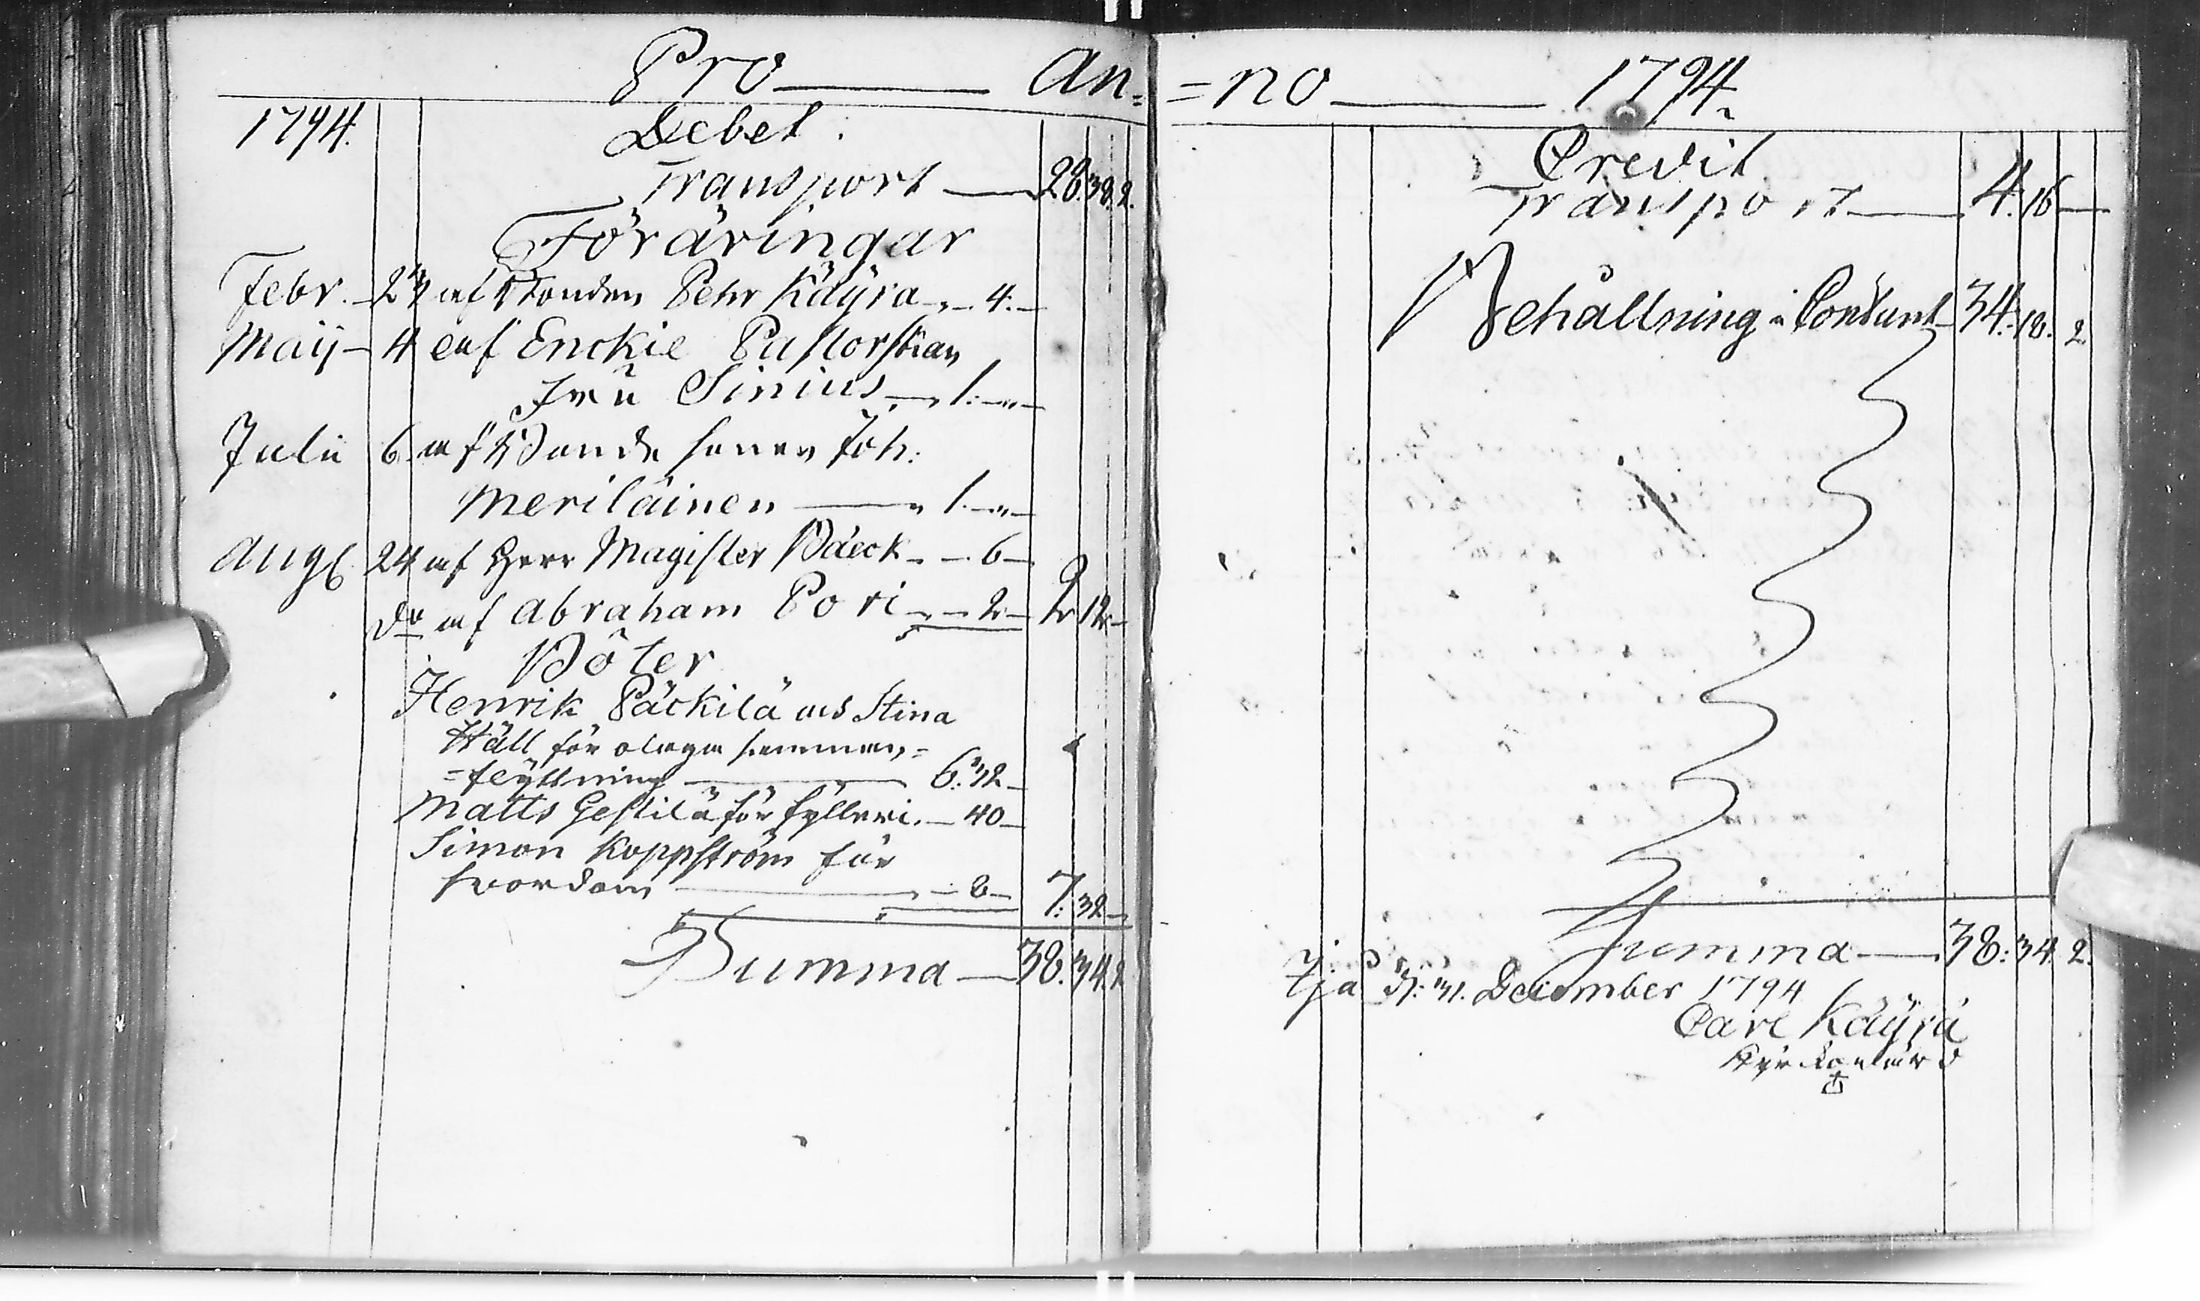 Pro ——— An=
1794. Debet.
Transport — 28. 38. 2.
Föräringar
Febr. — 24 af Bonden Pehr Käyrä — „ — 4. —
Maij — 4 af Enckie Pastorskan
Fru Sinius — „ 1. — „ —
Julii 6. af Bonde sonen Joh:
Meriläinen — „ 1. — „ —
Aug. 24 af Herr Magister Bäeck — „ — 6 —
do af Abraham Pori — „ — 2 — 2 12 —
Böter
Henrik Päckilä och Stina
Häll för olaga hemman=
=flyttning — 6: 32 —
Matts Gestilä för fylleri. — 40 —
Simon Koppström för
svordom — „ — 8 — 7: 32 —
Summa — 38. 34. 2
=no ——— 1794.
Credit
Transport — 4. 16 —
Behållning i Contant — 34. 18. 2
Summa — 38: 34. 2.
d: 31. December 1794
Carl Käyrä
Kyrkovärd